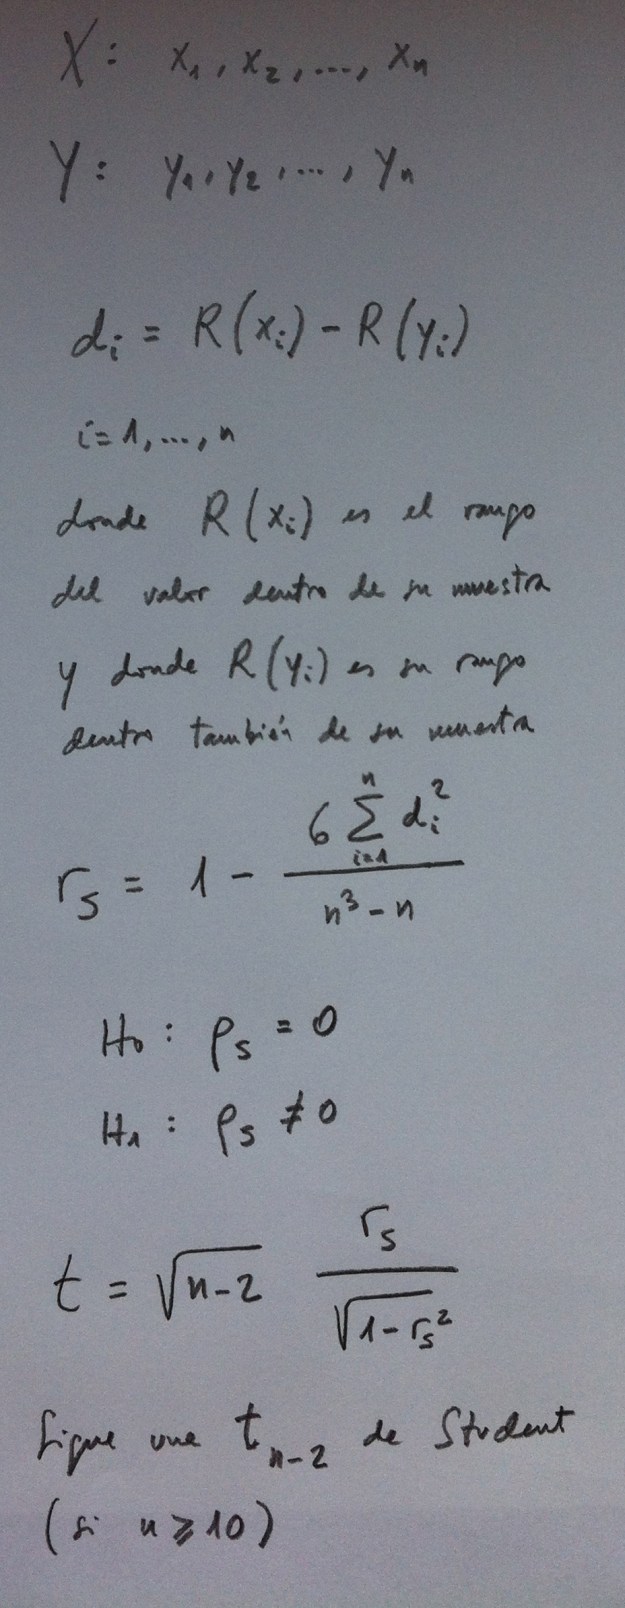 X: x₁, x₂, ..., xₙ
Y: y₁, y₂, ..., yₙ
dᵢ = R(xᵢ) - R(yᵢ)
i=1, ..., n
donde R(xᵢ) es el rango
del valor dentro de su muestra
y donde R(yᵢ) es su rango
dentro también de su muestra
r_s = 1 - (6 Σ_{i=1}^{n} dᵢ²) / (n³ - n)
H₀: ρ_s = 0
H₁: ρ_s ≠ 0
t = √(n-2) r_s / √(1-r_s²)
Sigue una t_{n-2} de Student
(si n ≥ 10)